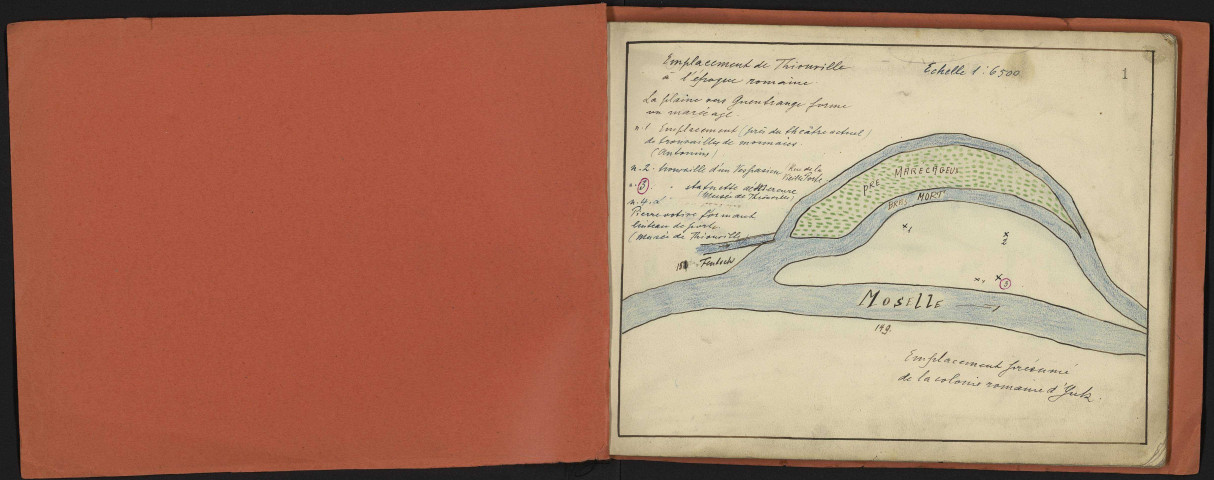 Emplacement de Thionville
à l'époque romaine
Echelle 1:6500
1
La plaine vers Guentrange forme
un marécage.
n.1 Emplacement (près du théâtre actuel)
de trouvailles de monnaies.
(Antonins)
n.2. trouvaille d'un Vespasien Rue de la
Vieille Porte
n. 3 . statuette de Mercure
(Musée de Thionville)
n.4.
Pierre votive formant
linteau de porte.
(Musée de Thionville)
Fentsch
PRE MARECAGEUX
BRAS MORT
x 1
x 2
x x 3
MOSELLE
149.
Emplacement présumé
de la colonie romaine d'Yutz.